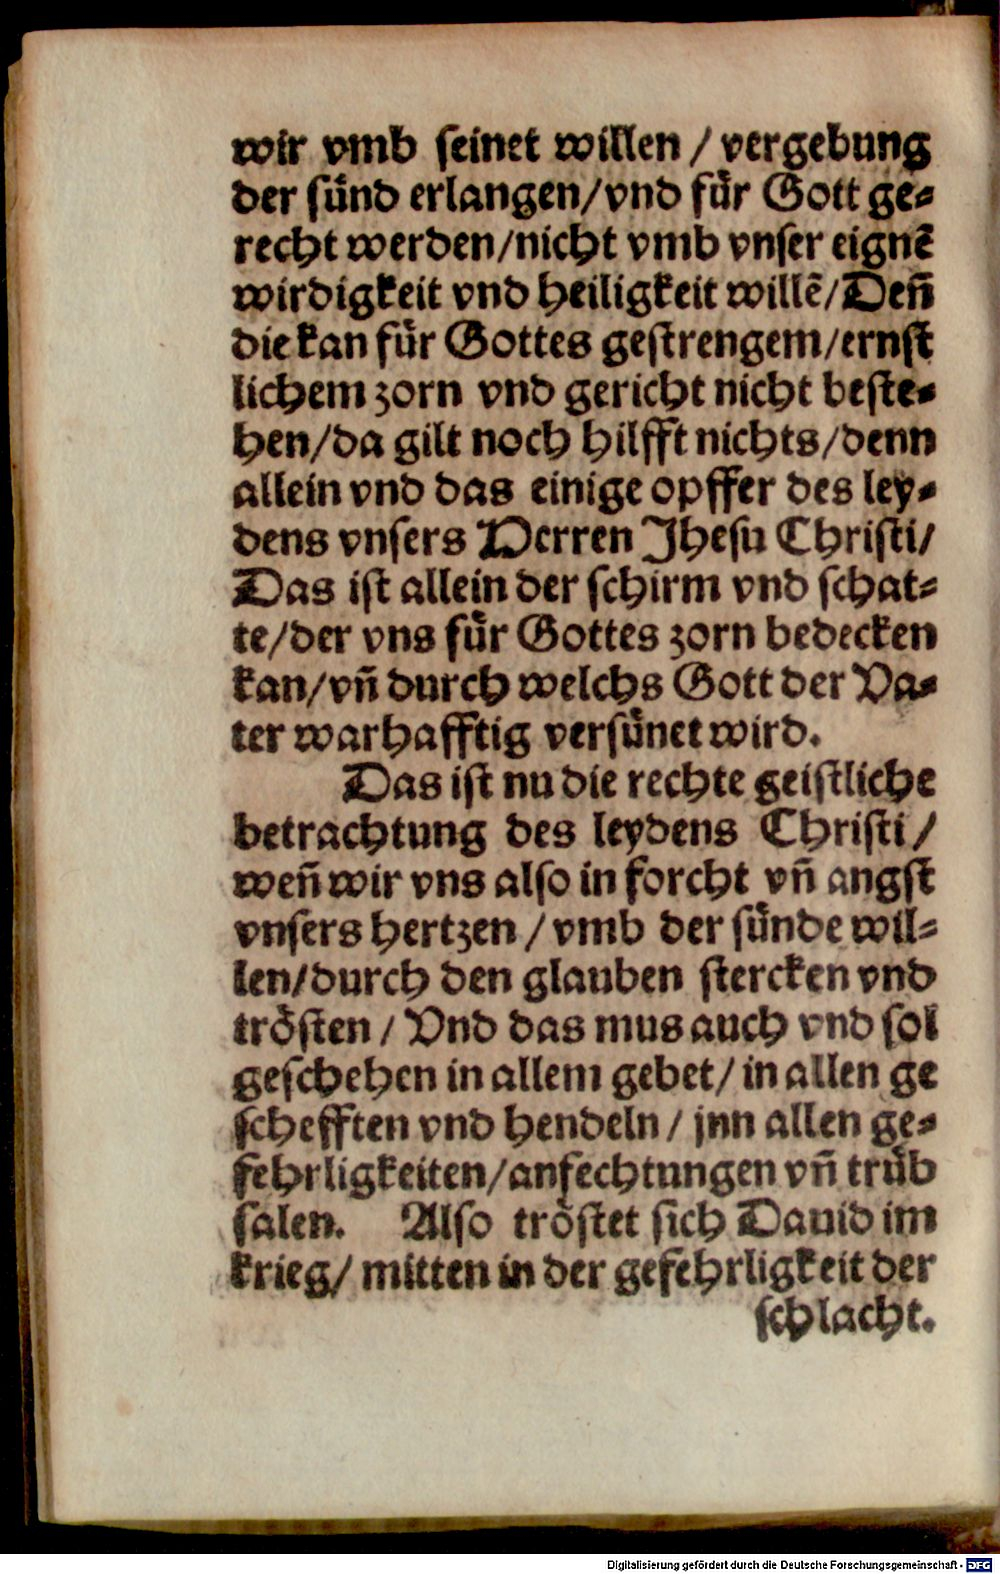 wir vmb seinet willen / vergebung
der sünd erlangen/vnd für Gott ge-
recht werden/nicht vmb vnser eignē
wirdigkeit vnd heiligkeit willē/Deñ
die kan für Gottes gestrengem/ernst
lichem zorn vnd gericht nicht beste-
hen/da gilt noch hilfft nichts/denn
allein vnd das einige opffer des ley-
dens vnsers Herren Jhesu Christi/
Das ist allein der schirm vnd schat-
te/der vns für Gottes zorn bedecken
kan/vñ durch welchs Gott der Va-
ter warhafftig versünet wird.
Das ist nu die rechte geistliche
betrachtung des leydens Christi/
weñ wir vns also in forcht vñ angst
vnsers hertzen / vmb der sünde wil-
len/durch den glauben stercken vnd
trösten / Vnd das mus auch vnd sol
geschehen in allem gebet/ in allen ge
schefften vnd hendeln / jnn allen ge-
fehrligkeiten/anfechtungen vñ trüb
salen. Also tröstet sich Dauid im
krieg/ mitten in der gefehrligkeit der
schlacht.
Digitalisierung gefördert durch die Deutsche Forschungsgemeinschaft - DFG